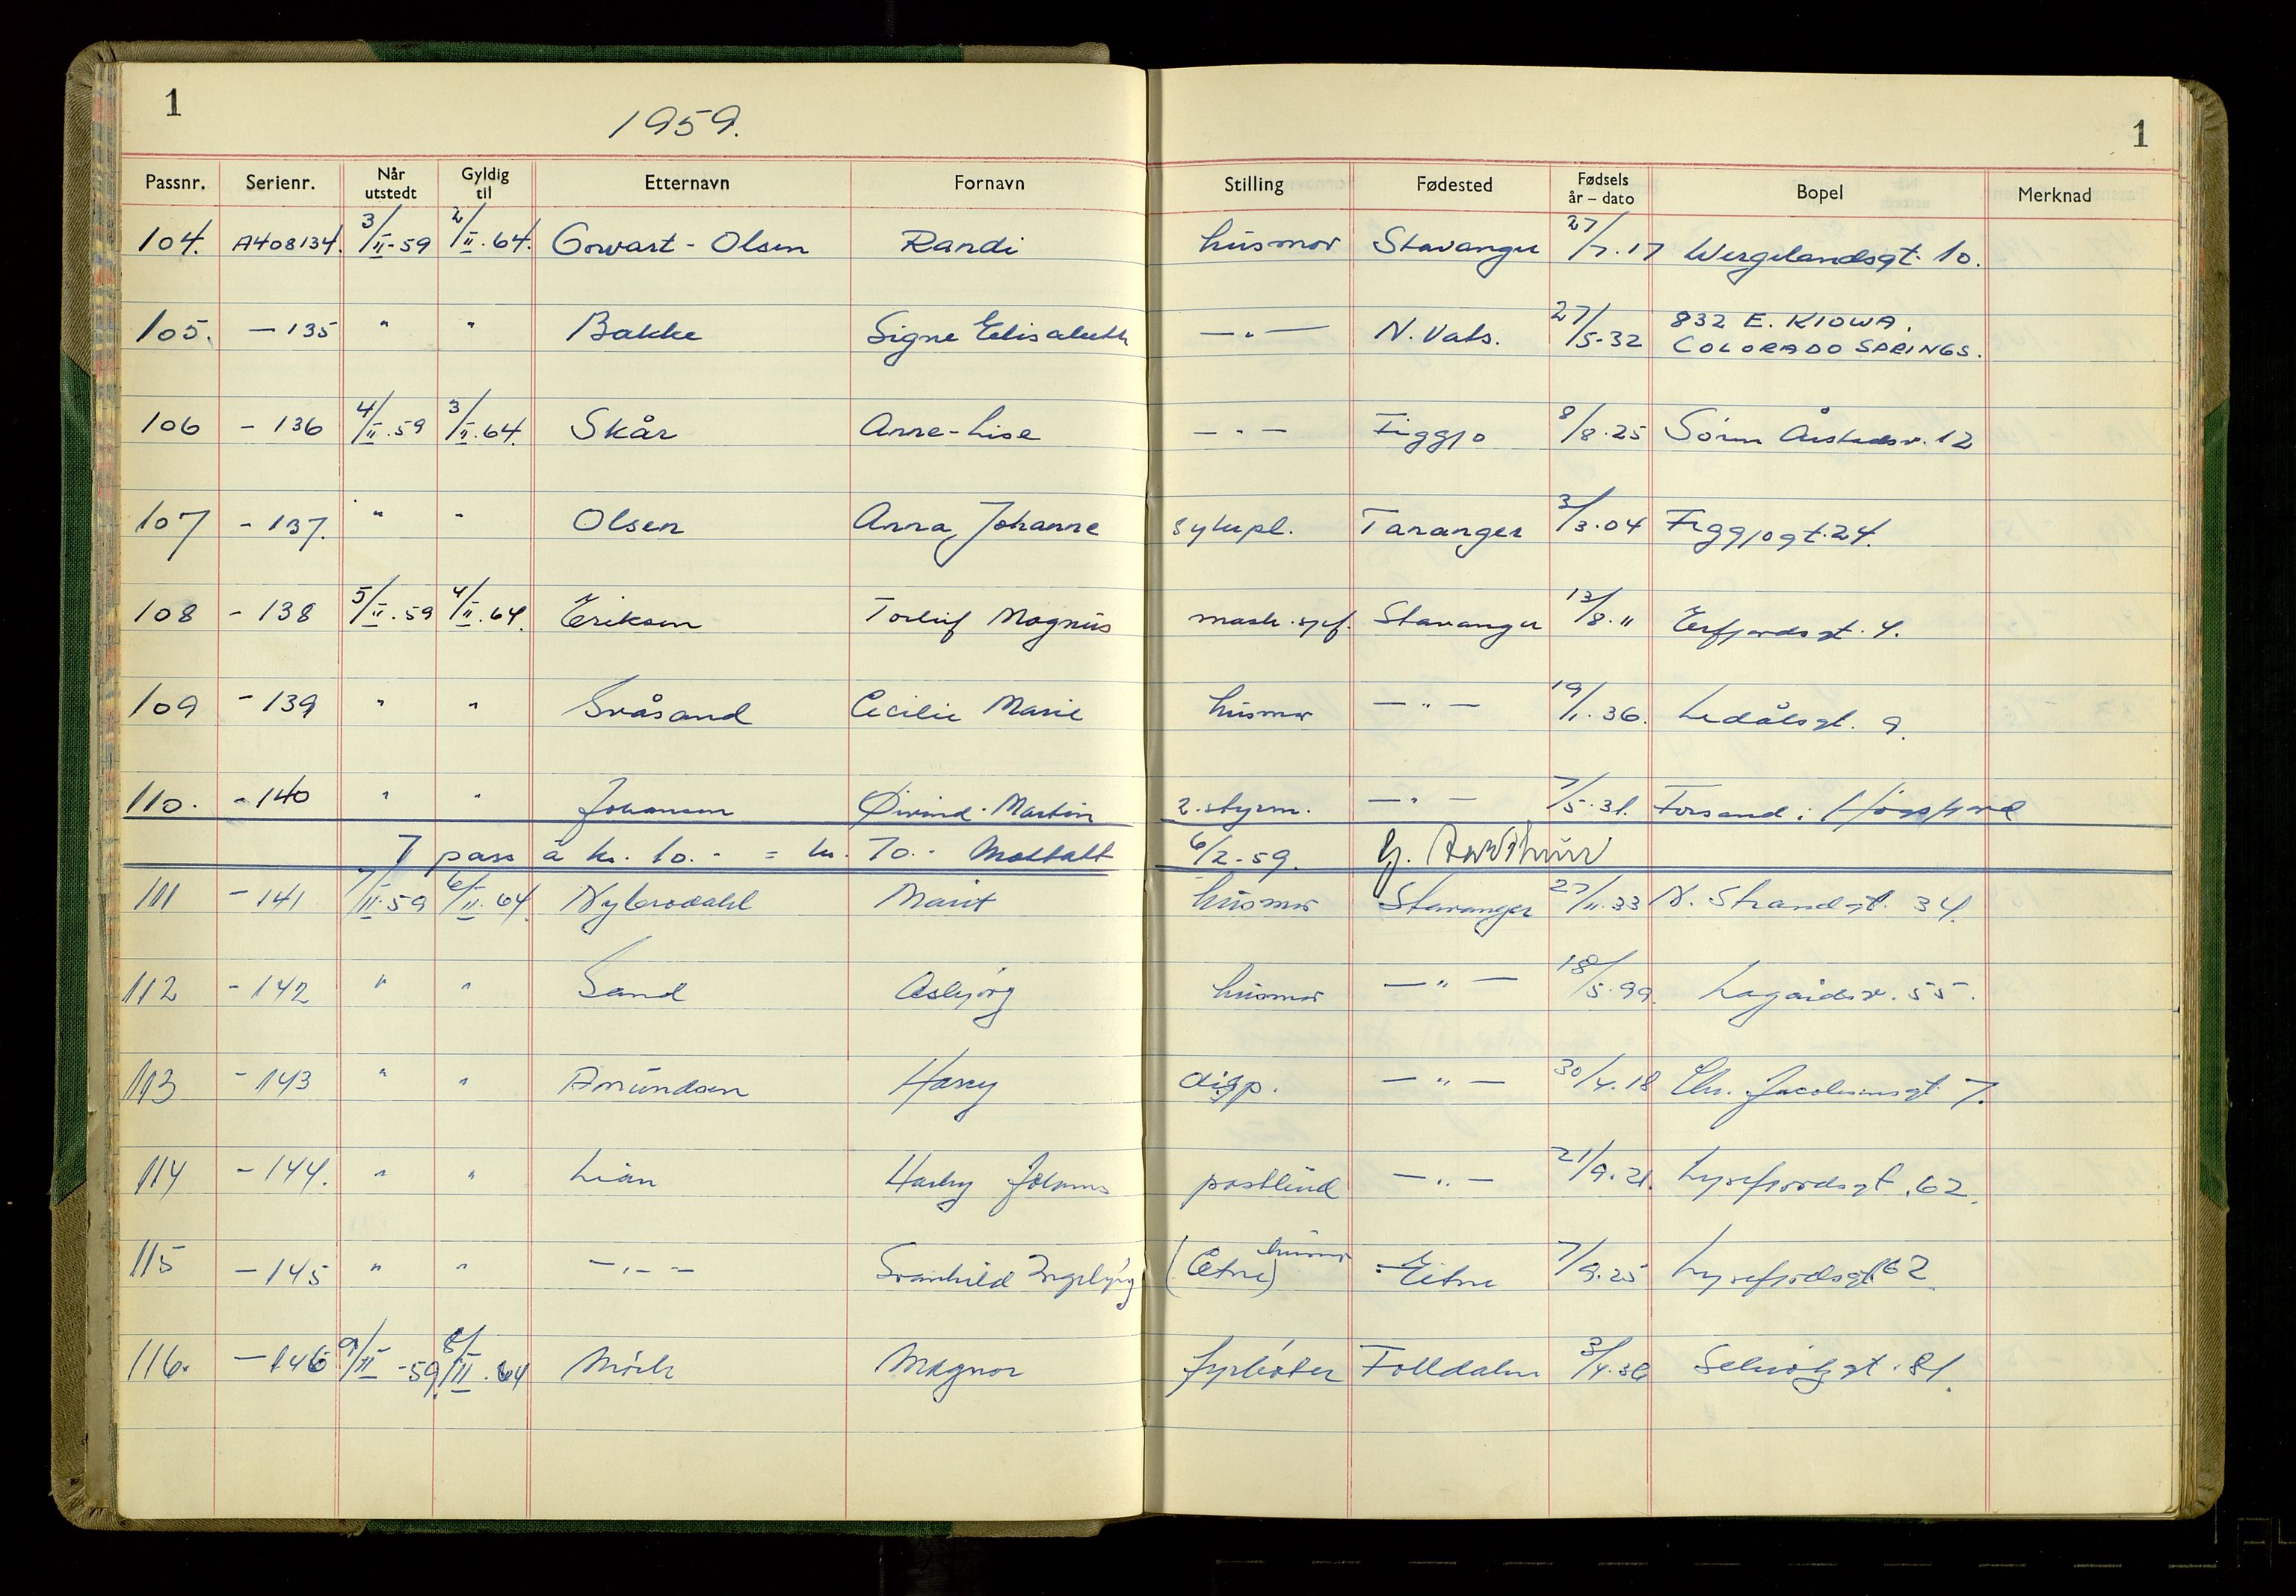 1
1959.
1
Passnr. Serienr. Når utstedt Gyldig til Etternavn Fornavn Stilling Fødested Fødsels år – dato Bopel Merknad
104. A408134. 3/II-59 2/II.64. Gowart - Olsen Randi husmor Stavanger 27/7.17 Wergelandsgt. 10.
105. - 135 " " Bakke Signe Elisabeth — " — N. Vats. 27/5-32 832 E. KIOWA. COLORADO SPRINGS.
106 - 136 4/II.59 3/II.64. Skår Anne-Lise — " — Figgjo 8/8.25 Sören Årstadsv. 12
107 - 137. " " Olsen Anna Johanne sykepl. Tananger 3/3.04 Figgjogt. 24.
108 - 138 5/II.59 4/II.64. Eriksen Torleif Magnus mask. sjef. Stavanger 13/8.11 Erfjordsgt. 4.
109 - 139 " " Svåsand Cecilie Marie husmor — " — 19/1.36. Ledålsgt. 9.
110. - 140 " " Johansen Øivind Martin 2. styrm. — " — 7/5.31. Forsand i Høgsfjord
7 pass à kr. 10.- = kr. 70.- Mottatt 6/2-59.
111 - 141 7/II.59 6/II.64. Nybrodahl Marit husmor Stavanger 27/11.33 N. Strandgt. 34.
112 - 142 " " Sand Asbjörg husmor — " — 18/5.99. Lagårdsv. 55.
113 - 143 " " Amundsen Harry disp. — " — 30/4.18 Chr. Jacobsensgt. 7.
114 - 144. " " Lian Harby Johannes postbud — " — 21/9.21. Lysefjordsgt. 62.
115 - 145 " " — " — Svanhild Ingebjörg (Etne) husmor Etne 7/9.25 Lysefjordsgt. 62
116. - 146 9/II-59. 8/II.64 Mörk Magnor fyrböter Folldalen 3/4.36 Selvötgt. 81.